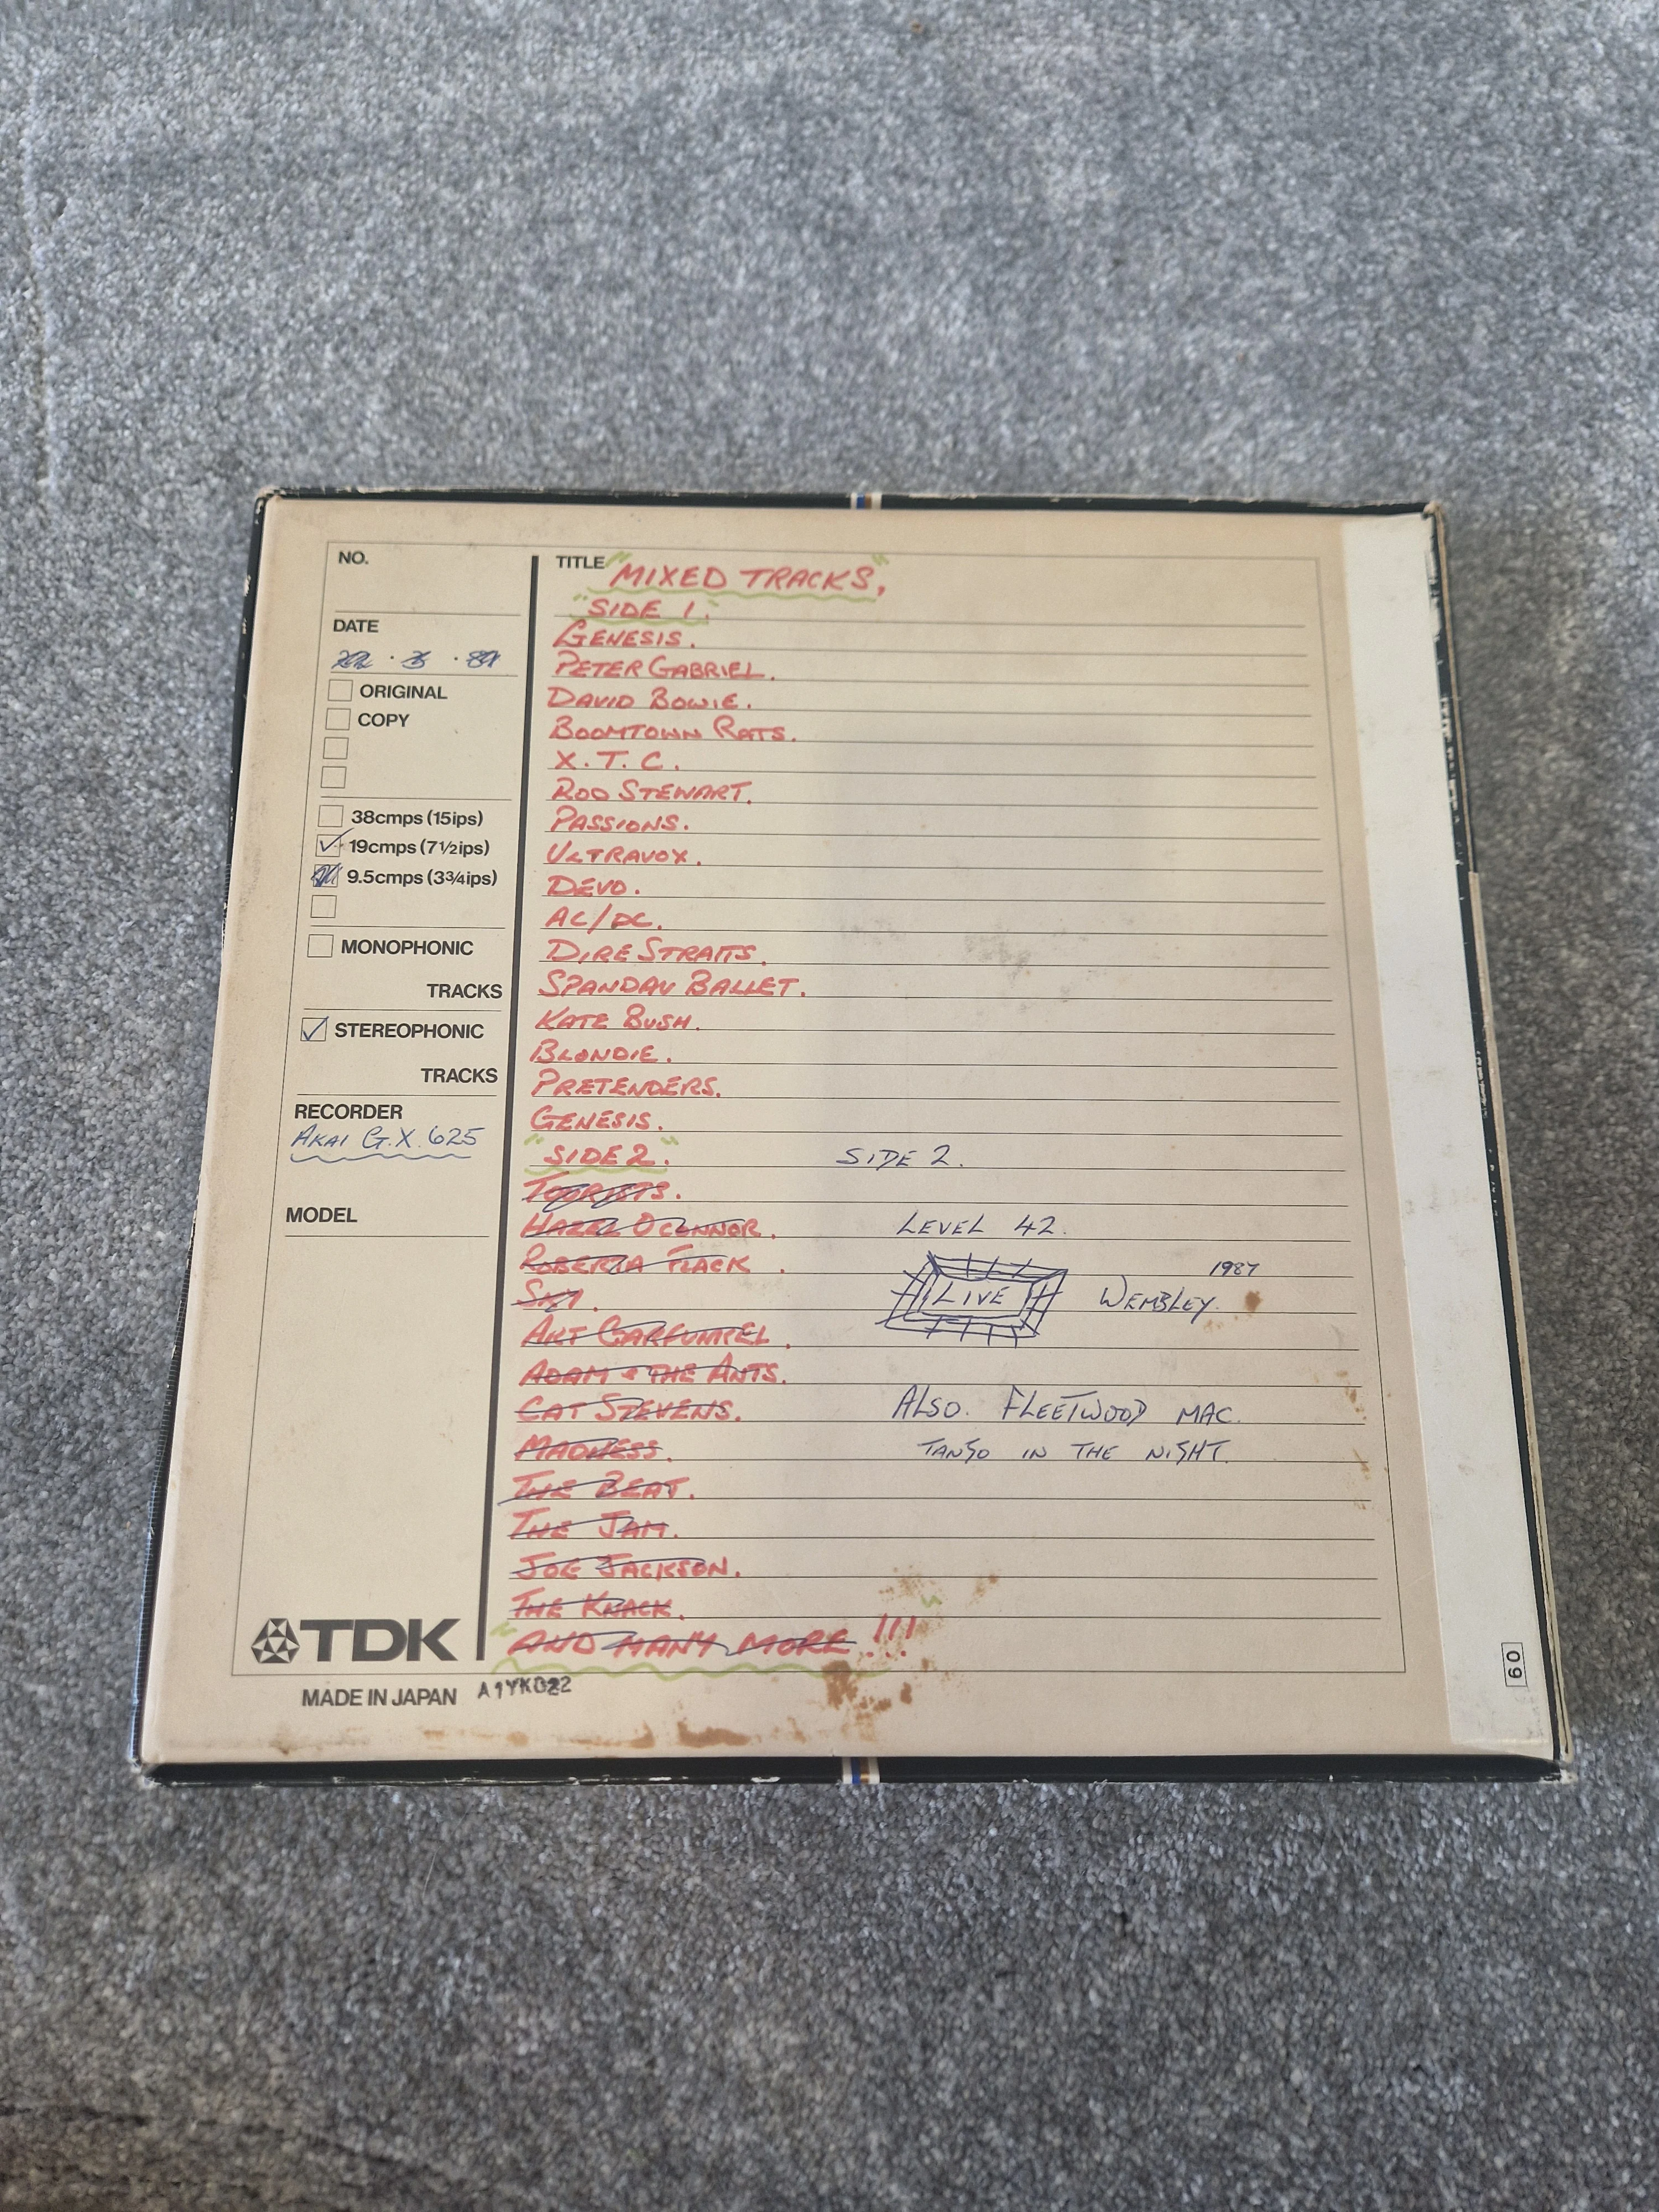 NO.
DATE
ORIGINAL
COPY
38cmps (15ips)
19cmps (7½ips)
9.5cmps (3¾ips)
MONOPHONIC
TRACKS
STEREOPHONIC
TRACKS
RECORDER
AKAI G.X. 625
MODEL
TDK
MADE IN JAPAN A1YK022
TITLE "MIXED TRACKS,"
"SIDE 1."
GENESIS.
PETER GABRIEL.
DAVID BOWIE.
BOOMTOWN RATS.
X.T.C.
ROD STEWART.
PASSIONS.
ULTRAVOX.
DEVO.
AC/DC.
DIRE STRAITS.
SPANDAU BALLET.
KATE BUSH.
BLONDIE.
PRETENDERS.
GENESIS.
"SIDE 2."
TOURISTS.
HAZEL O'CONNOR.
ROBERTA FLACK.
SKY.
ART GARFUNKEL.
ADAM & THE ANTS.
CAT STEVENS.
MADNESS.
THE BEAT.
THE JAM.
JOE JACKSON.
THE KNACK.
"AND MANY MORE!!!"
SIDE 2.
LEVEL 42.
LIVE WEMBLEY. 1987
ALSO. FLEETWOOD MAC.
TANGO IN THE NIGHT.
60